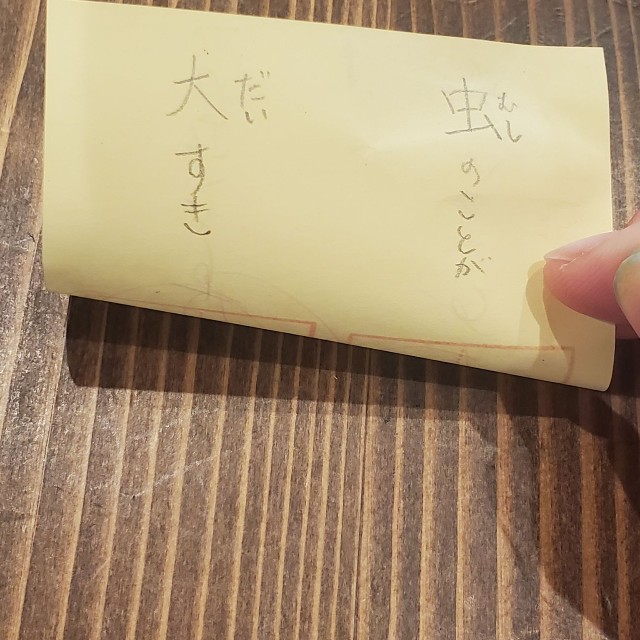 虫のことが
むし
犬すき
だい